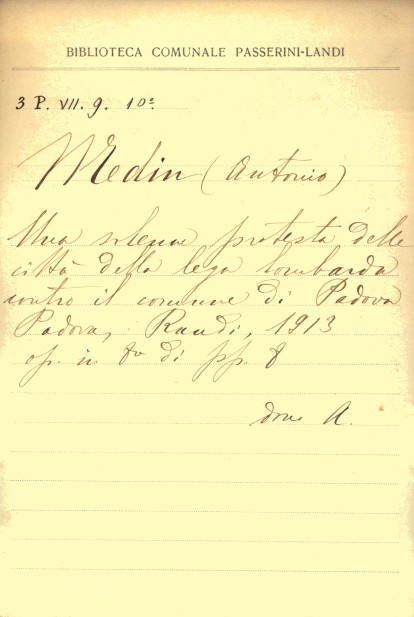 BIBLIOTECA COMUNALE PASSERINI-LANDI
3 P. VII. 9. 10°.
Medin (Antonio)
Una solenne protesta delle
città della lega lombarda
contro il comune di Padova
Padova, Randi, 1913
op. in 8° di pp. 8
dono A.